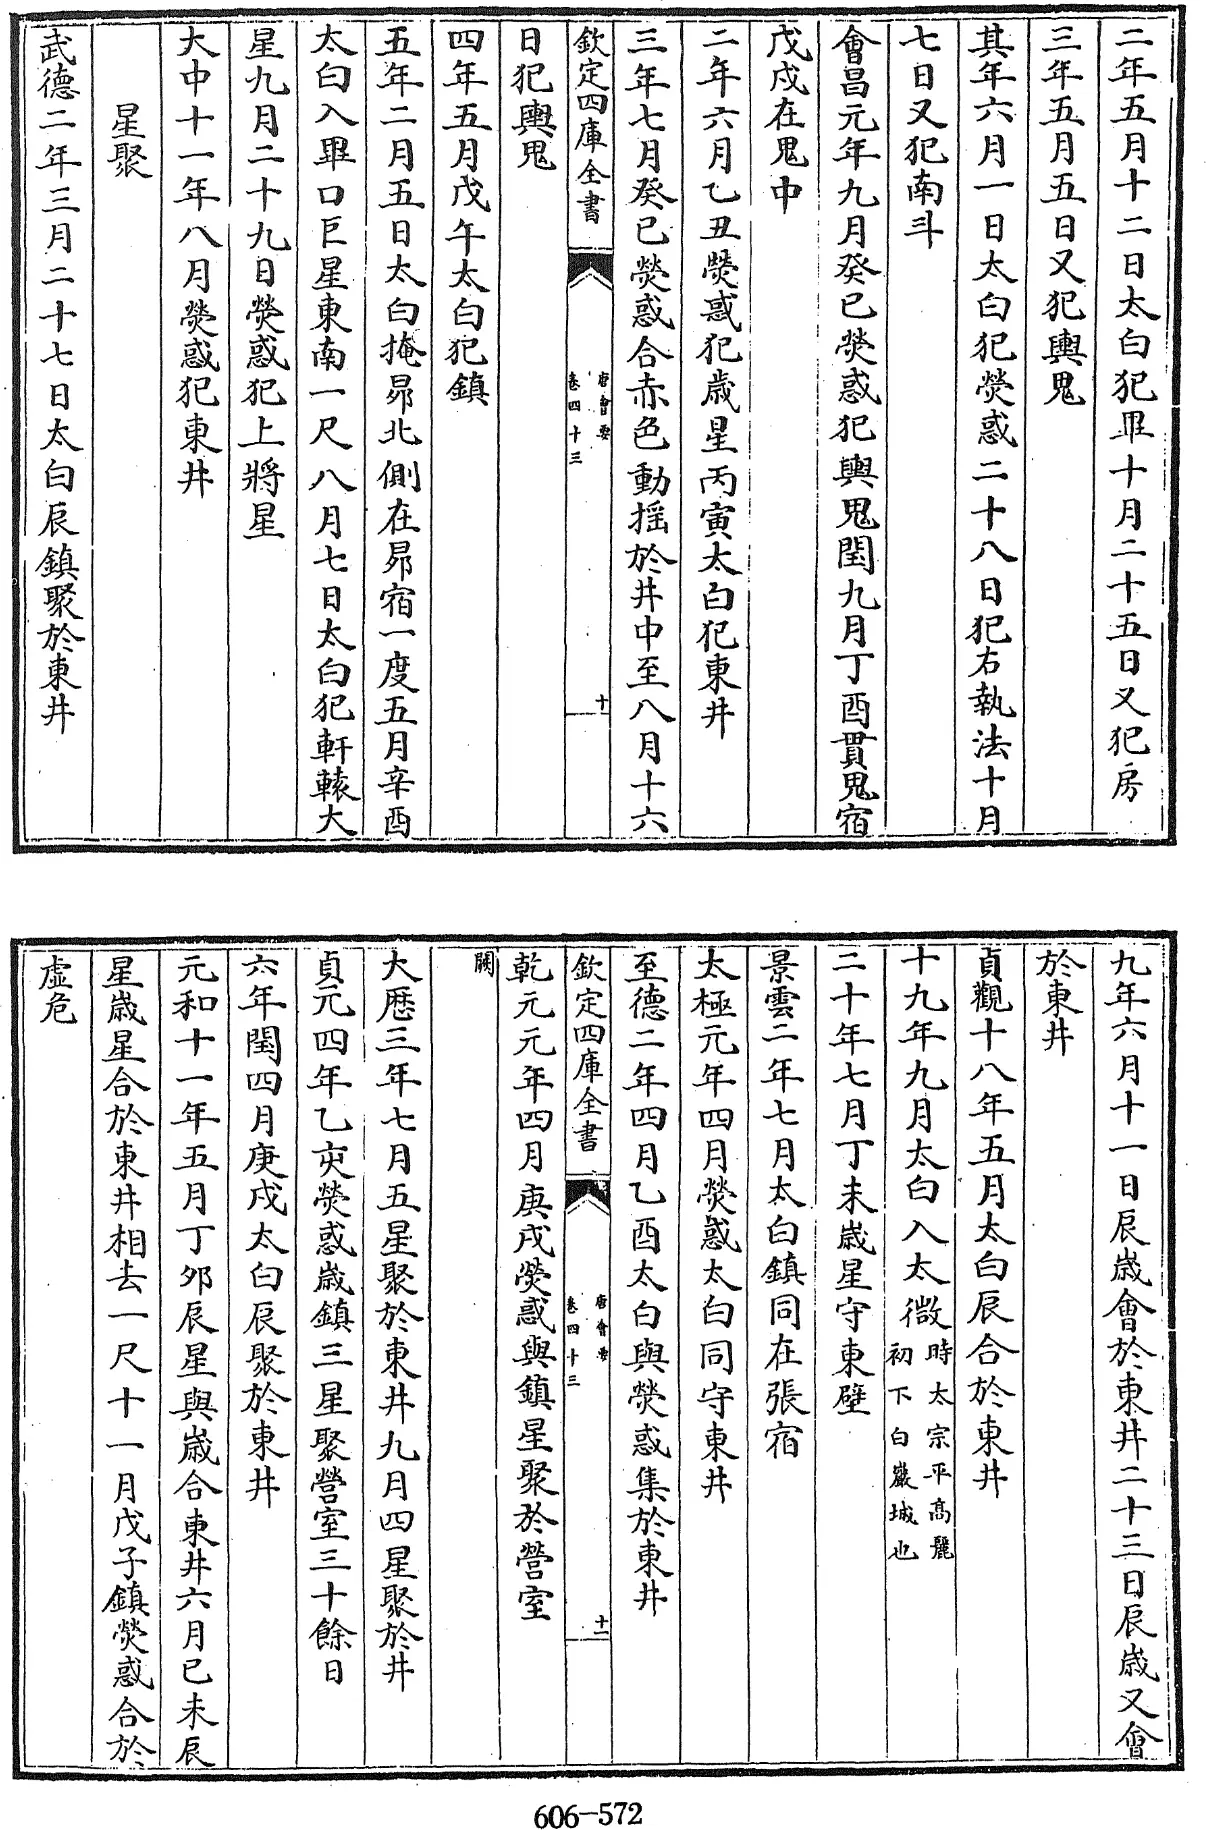 二年五月十二日太白犯畢十月二十五日又犯房
三年五月五日又犯輿鬼
其年六月一日太白犯熒惑二十八日犯右執法十月
七日又犯南斗
會昌元年九月癸巳熒惑犯輿鬼閏九月丁酉貫鬼宿
戊戌在鬼中
二年六月乙丑熒惑犯歲星丙寅太白犯東井
三年七月癸巳熒惑合赤色動揺於井中至八月十六
欽定四庫全書
唐會要
卷四十三
十
日犯輿鬼
四年五月戊午太白犯鎮
五年二月五日太白掩昴北側在昴宿一度五月辛酉
太白入畢口巨星東南一尺八月七日太白犯軒轅大
星九月二十九日熒惑犯上將星
大中十一年八月熒惑犯東井
星聚
武德二年三月二十七日太白辰鎮聚於東井
九年六月十一日辰歲會於東井二十三日辰歲又會
於東井
貞觀十八年五月太白辰合於東井
十九年九月太白入太微時太宗平高麗初下白巖城也
二十年七月丁未歲星守東壁
景雲二年七月太白鎮同在張宿
太極元年四月熒惑太白同守東井
至德二年四月乙酉太白與熒惑集於東井
欽定四庫全書
唐會要
卷四十三
十一
乾元元年四月庚戌熒惑與鎮星聚於營室
闕
大厯三年七月五星聚於東井九月四星聚於井
貞元四年乙亥熒惑歲鎮三星聚營室三十餘日
六年閏四月庚戌太白辰聚於東井
元和十一年五月丁卯辰星與歲合東井六月已未辰
星歲星合於東井相去一尺十一月戊子鎮熒惑合於
虛危
606-572